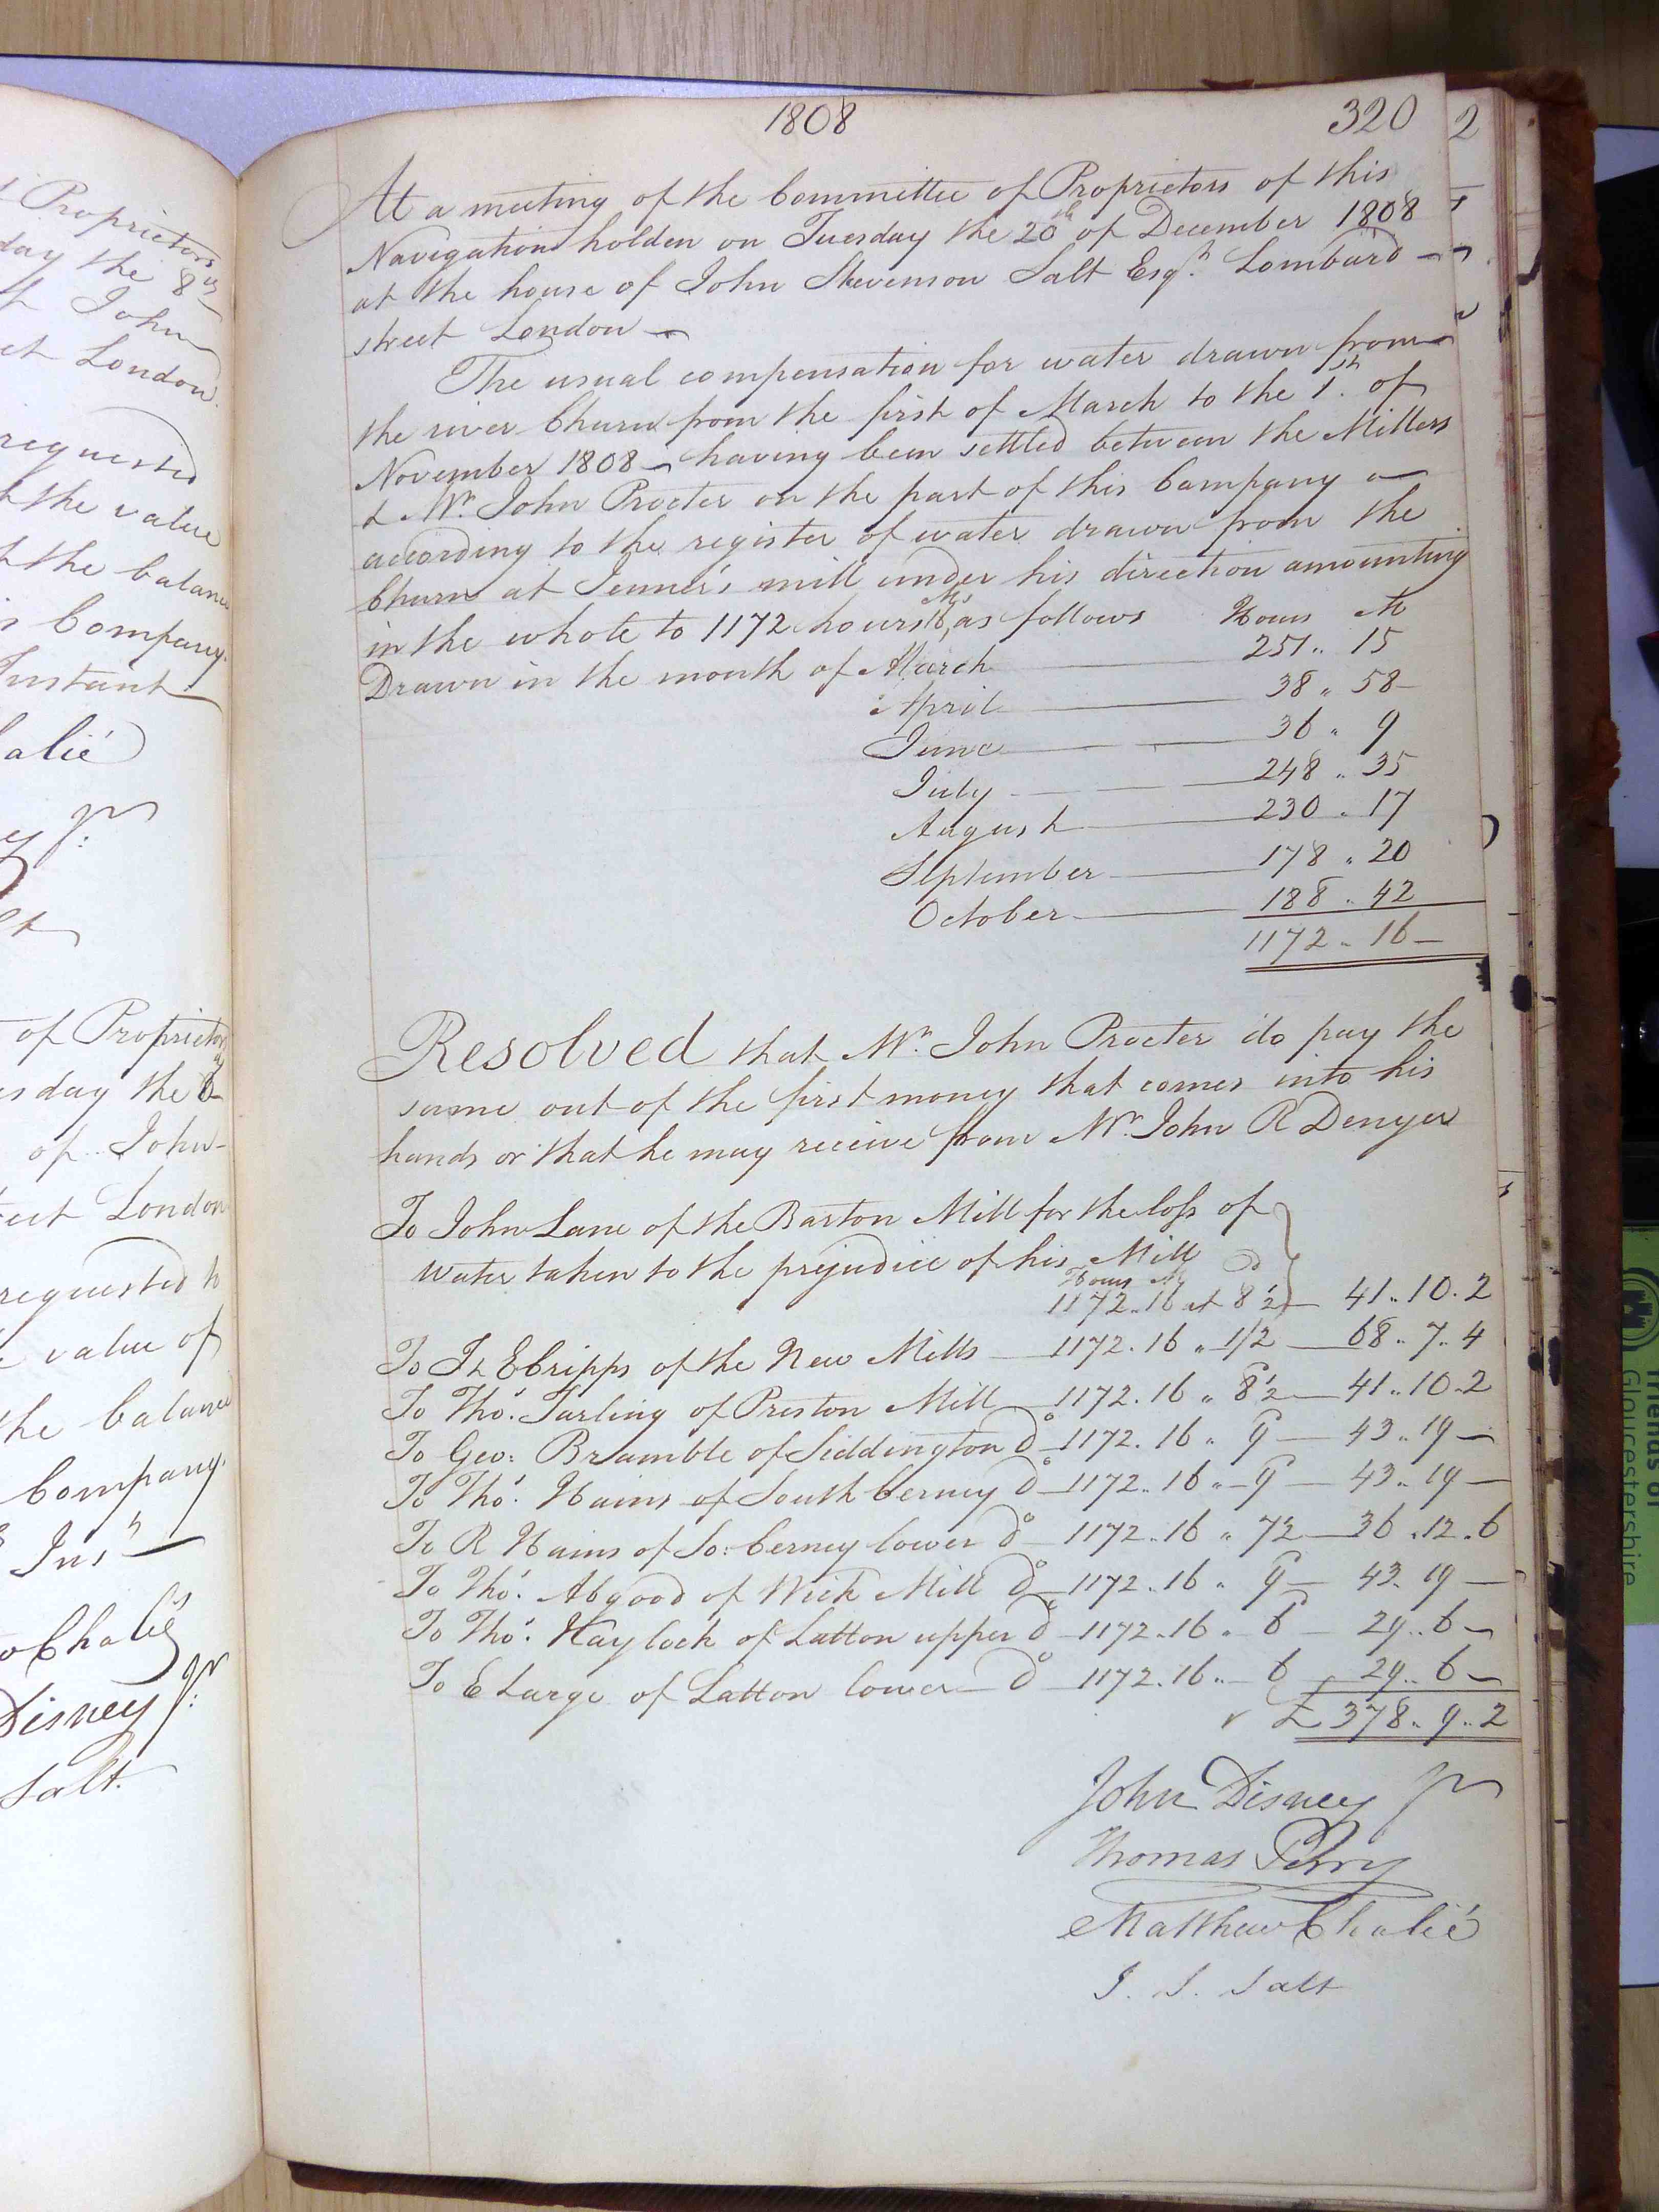 Proprietors
day the 8th
John
London
requested
the value
the balance
Company
Instant
alié
Jr
of Proprietors
day the
of John
London
requested to
value of
the balance
Company
Inst
Chalié
Disney Jr
Salt.
1808
320
2
At a meeting of the Committee of Proprietors of this
Navigation holden on Tuesday the 20th of December 1808
at the house of John Stevenson Salt Esqr. Lombard
street London
The usual compensation for water drawn from
the river Churn from the first of March to the 1st. of
November 1808 having been settled between the Millers
& Mr. John Procter on the part of this Company
according to the register of water drawn from the
Churn at Jenner's mill under his direction amounting
in the whole to 1172 hours 16 Ms as follows Hours M
Drawn in the month of March 251 .. 15
April 38 .. 58
June 36 .. 9
July 248 .. 35
August 230 .. 17
September 178 .. 20
October 188 .. 42
1172 .. 16
Resolved that Mr. John Procter do pay the
same out of the first money that comes into his
hands or that he may receive from Mr. John R Denyer
To John Lane of the Barton Mill for the loss of
water taken to the prejudice of his Mill
Hours Ms d
1172 .. 16 at 8½ 41 .. 10 . 2
To J & E Cripps of the New Mills 1172 . 16 .. 1/2 68 .. 7 .. 4
To Tho. Tarling of Preston Mill 1172 . 16 .. 8½ 41 .. 10 .. 2
To Geo: Bramble of Siddington Do 1172 . 16 .. 9 43 .. 19 —
To Tho. Hains of South Cerney Do 1172 .. 16 .. 9 43 .. 19 —
To R Hains of So: Cerney lower Do 1172 .. 16 .. 7½ 36 .. 12 .. 6
To Tho. Abgood of Wick Mill Do 1172 .. 16 .. 9 43 .. 19 —
To Tho. Haylock of Latton upper Do 1172 .. 16 .. 6 29 .. 6 —
To E Large of Latton lower Do 1172 .. 16 .. 6 29 .. 6 —
£ 378 .. 9 .. 2
John Disney Jr
Thomas Perry
Matthew Chalié
J. S. Salt
Friends of
Gloucestershire